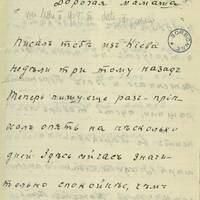 Дорогая мамаша
Писалъ тебѣ изъ Кіева
недѣли три тому назадъ
Теперь пишу еще разъ прiѣ-
халъ опять на нѣсколько
дней Здѣсь сейчасъ значи-
тельно спокойнѣе, чѣмъ